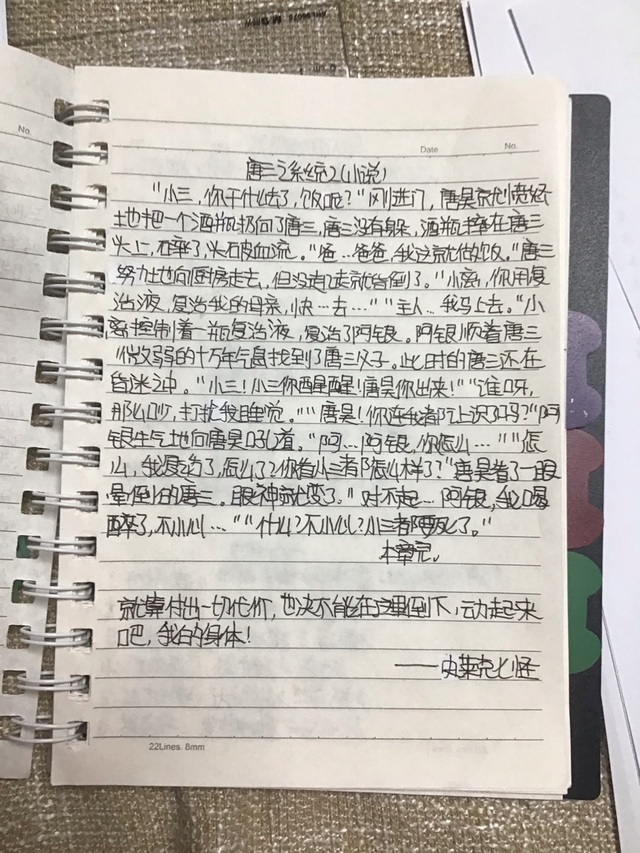 No.
Date No.
唐三之系统2(小说)
"小三,你干什么去了,饭呢?"刚进门,唐昊就愤怒
地把一个酒瓶扔向了唐三,唐三没有躲,酒瓶摔在唐三
头上,碎了,头破血流。"爸…爸爸,我这就做饭。"唐三
努力地向厨房走去,但没走几走就昏倒了。"小离,你用复
治液,复治我的母亲,快…去…""主人…我马上去。"小
离控制着一瓶复治液,复治了阿银。阿银顺着唐三
微弱的十万年气息找到了唐三父子。此时的唐三还在
昏迷之中。"小三!小三你醒醒!唐昊你出来!""谁呀,
那么吵,打扰我睡觉。""唐昊!你连我都不认识了吗?"阿
银生气地向唐昊吼道。"阿…阿银,你怎么…""怎
么,我复活了,怎么了?你看小三都怎么样了?"唐昊看了一眼
晕倒的唐三。眼神就变了。"对不起…阿银,我喝
醉了,不小心…""什么?不小心?小三都要死了。"
本章完。
就算付出一切代价,也决不能在这里倒下,动起来
吧,我的身体!
——史莱克七怪
22Lines. 8mm